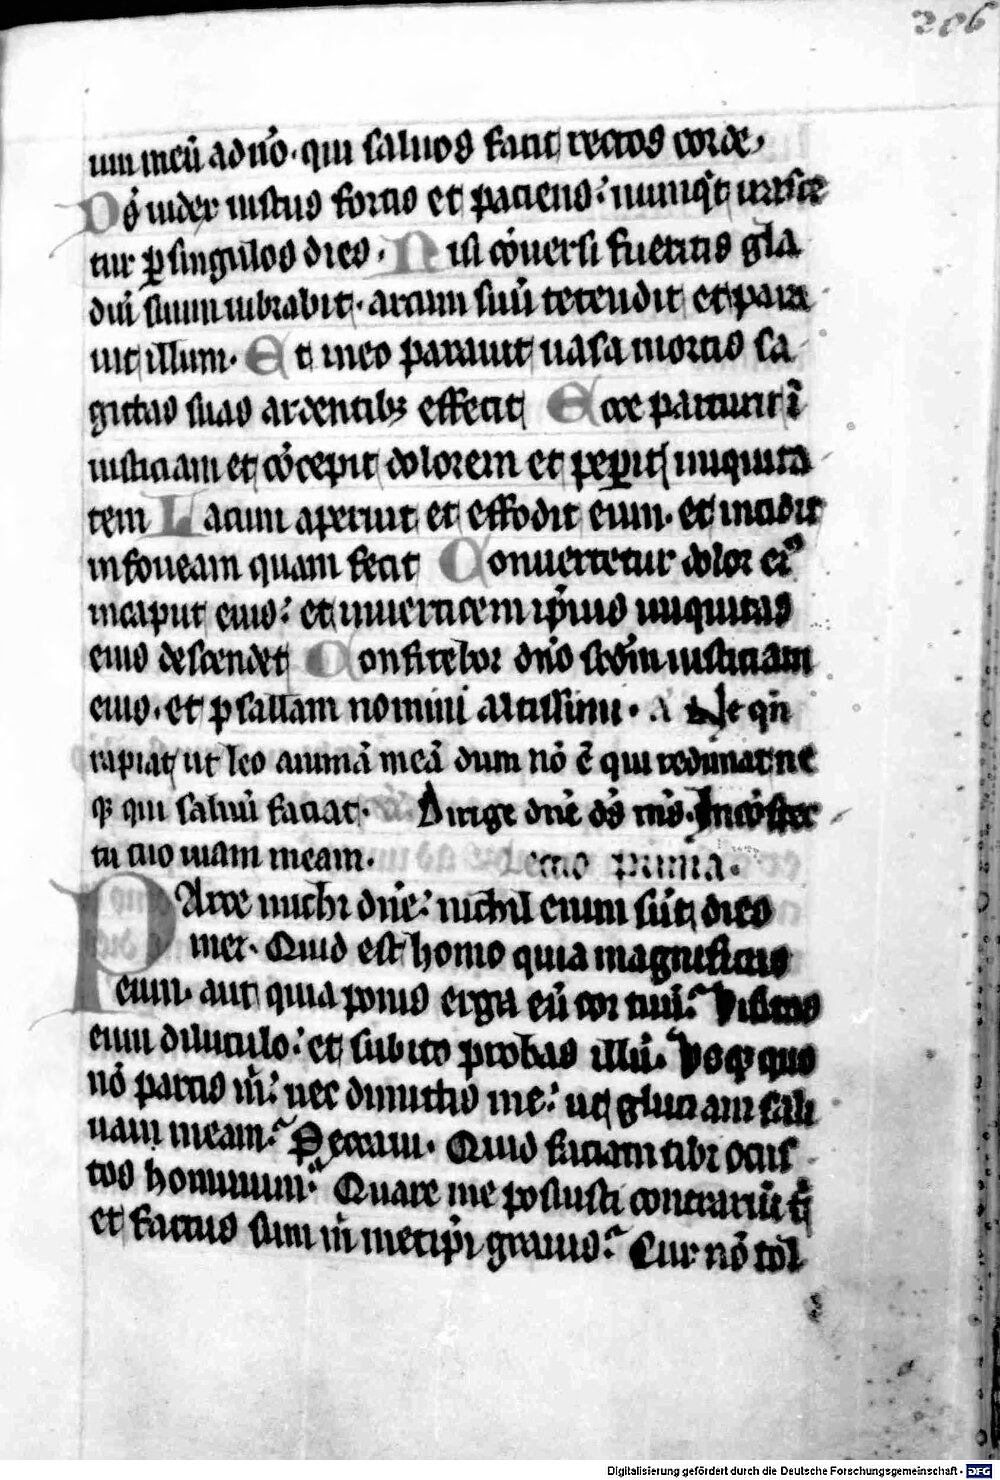 206
um meū ad dn̄o · qui saluos facit rectos corde,
Ds̄ iudex iustus fortis et paciens: numq̄t irasce
tur ꝑ singulos dies . Nisi cōuersi fueritis gla
diū suum uibrabit · arcum suū tetendit et para
uit illum · Et in eo parauit uasa mortis sa
gittas suas ardentibꝫ effecit Ecce parturit ī
iusticiam et cōcepit dolorem et peꝑit iniquita
tem Lacum aperuit et effodit eum · et incidit
in foueam quam fecit Conuertetur dolor eiꝰ
in caput eius: et in uerticem ip̄ius iniquitas
eius descendet Confitebor dn̄o scd̄m iusticiam
eius · et psallam nomini altissimi · A Ne qn̄
rapiat ut leo animā meā dum nō ē qui redimat ne
qꝫ qui saluū faciat · Dirige dn̄e ds̄ ms̄ · in cōspec
tu tuo uiam meam · Lectio prima ·
PArce michi dn̄e: nichil enim sūt dies
mei · Quid est homo quia magnificas
eum · aut quia ponis erga eū cor tuū: Visitas
eum diluculo: et subito probas illū · Vsqꝫ quo
nō parcis m̄: nec dimittis me: ut gluciam sali
uam meam: Peccaui · Quid faciam tibi o cus
tos hominum: Quare me posuisti contrariū t̄
et factus sum m̄ metip̄i grauis: Cur nō tol
Digitalisierung gefördert durch die Deutsche Forschungsgemeinschaft - DFG